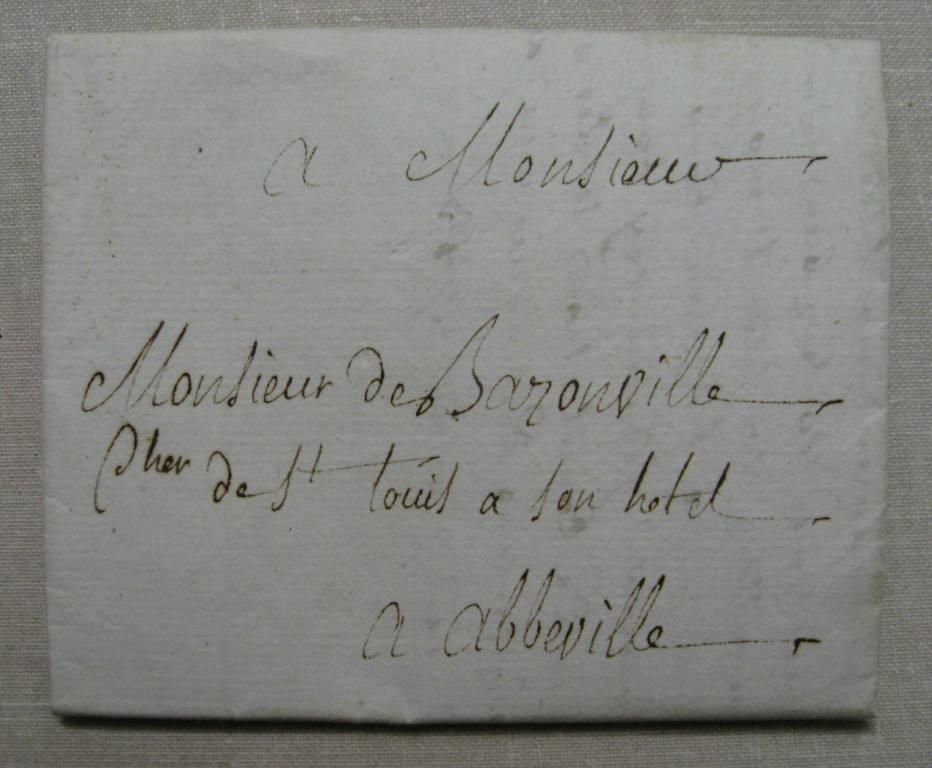 a Monsieur
Monsieur de Bazonville
Cher de St Louis a son hotel
a abbeville